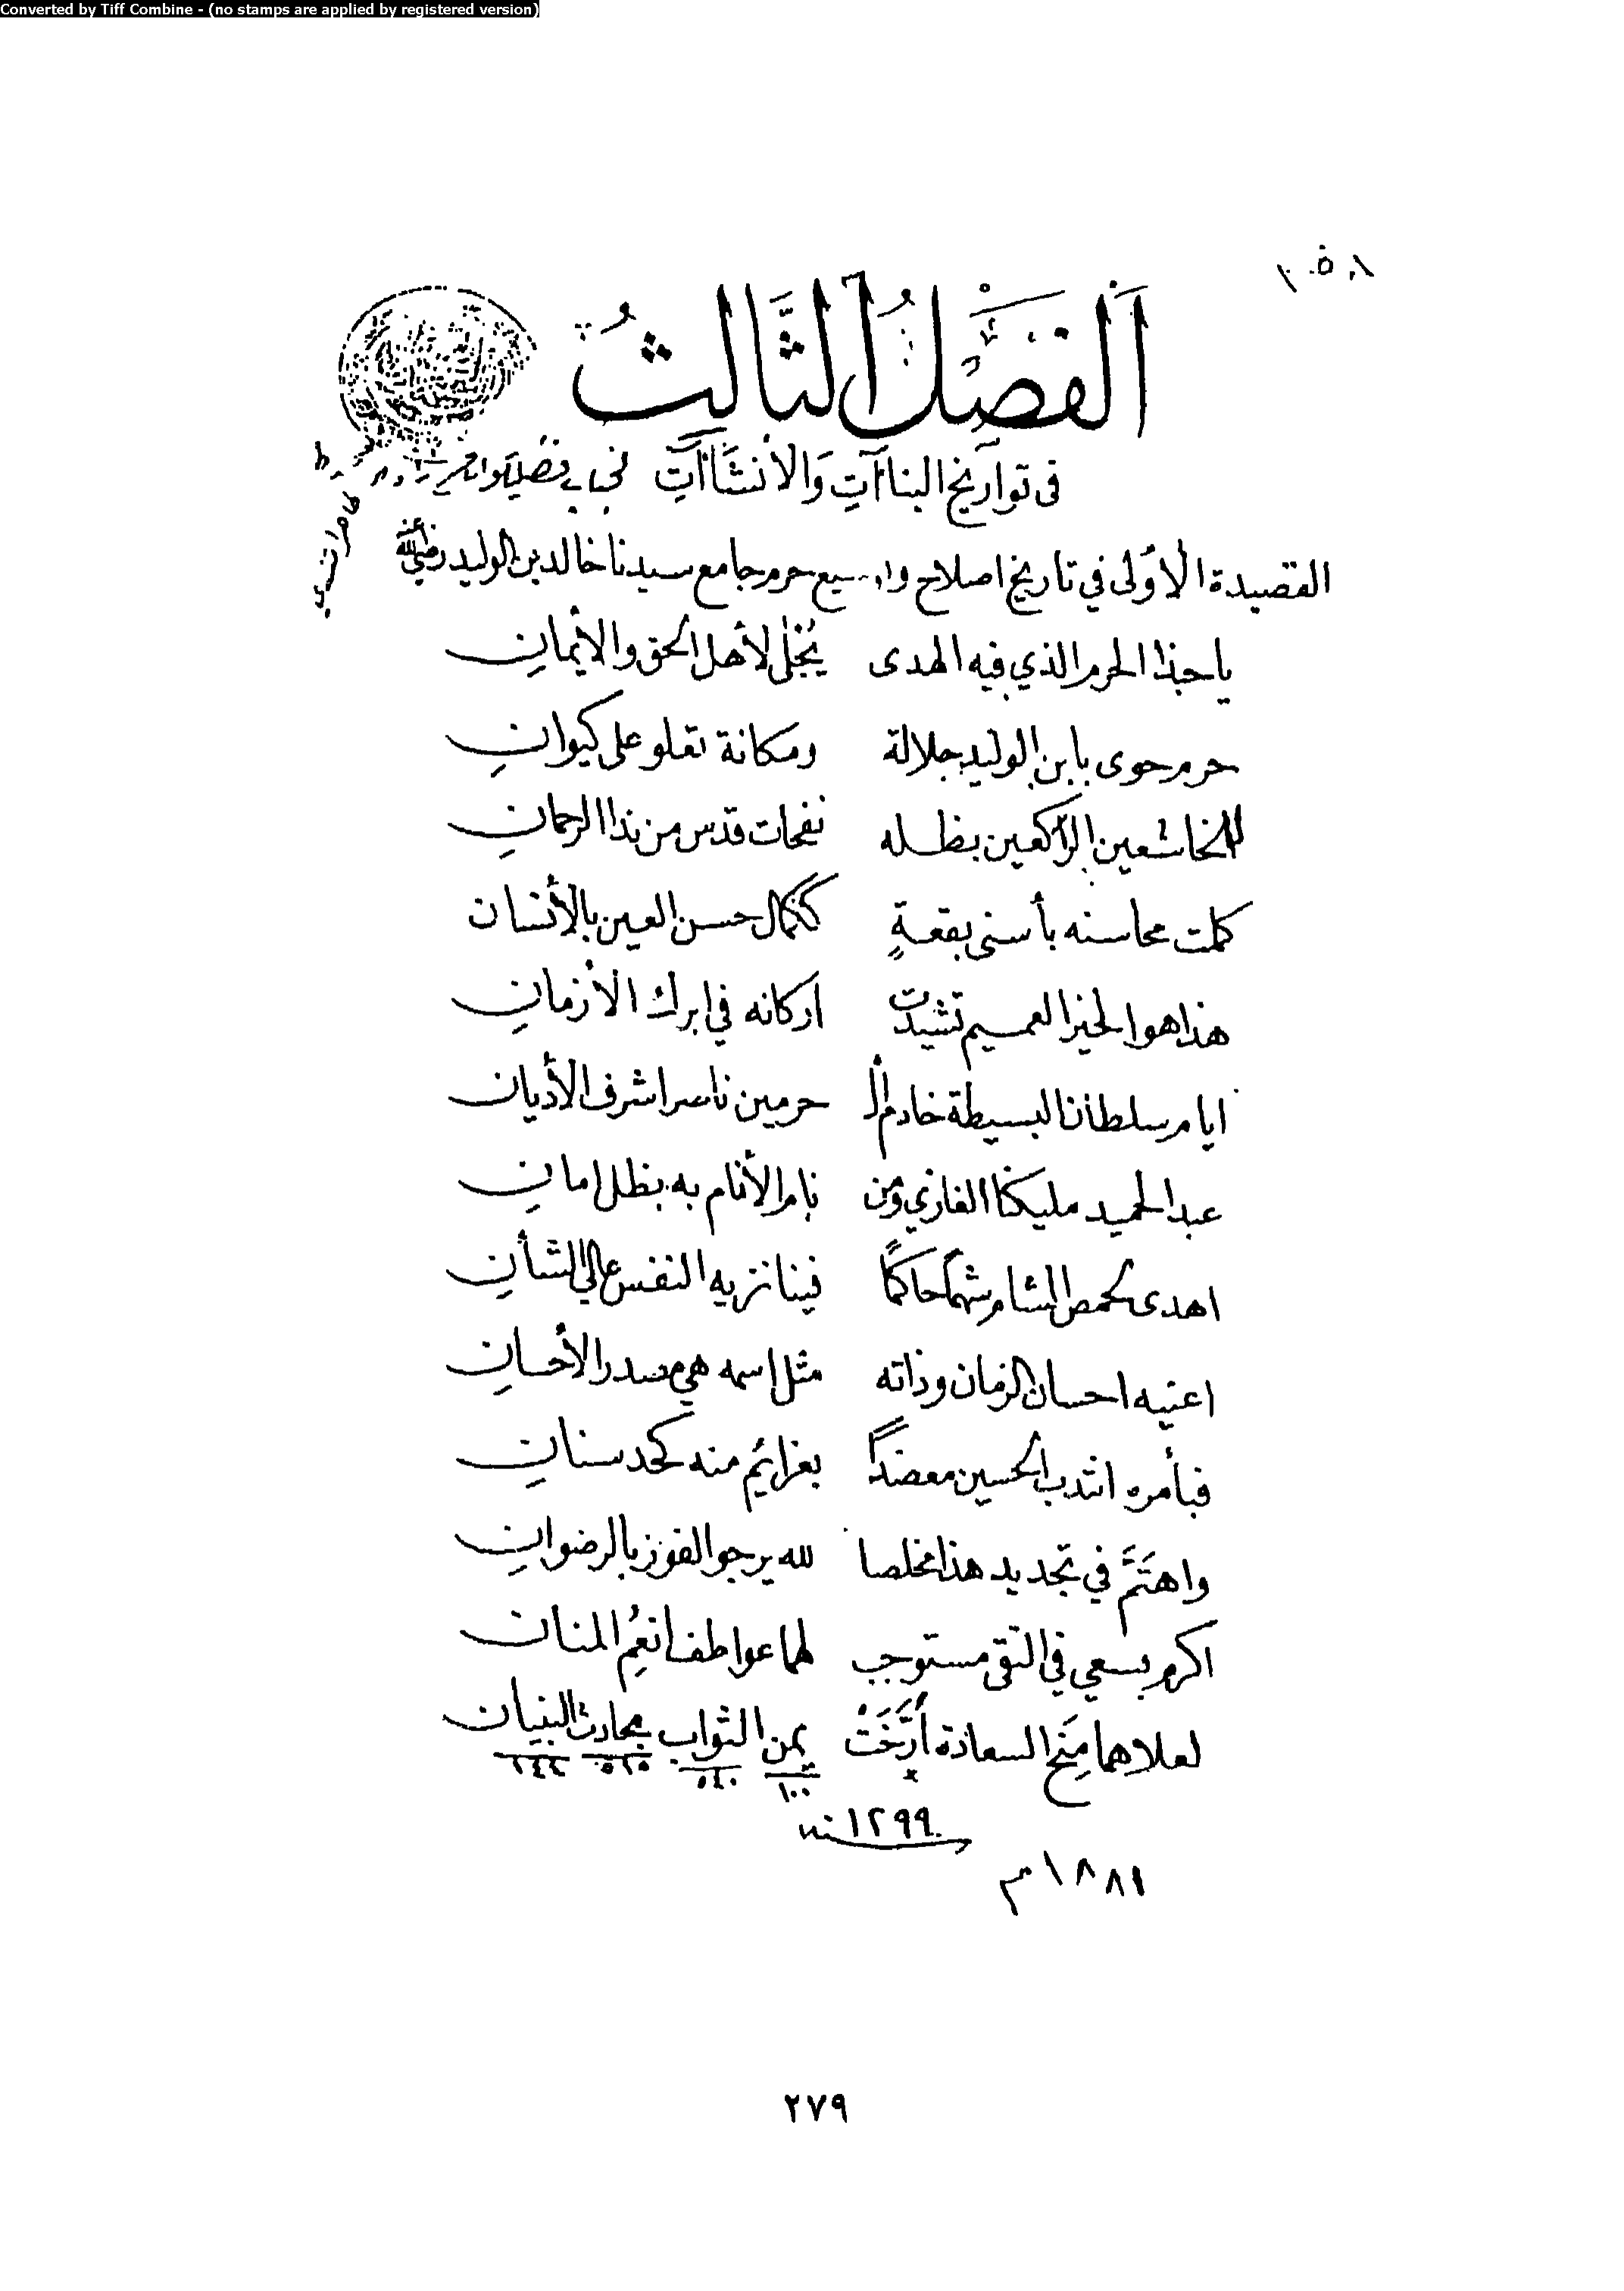 Converted by Tiff Combine - (no stamps are applied by registered version)
اَلفَصْلُ الثَّالِثُ
فى تواريخ البناآتِ وَالأنشَاآتِ
القصيدة الأولى في تاريخ اصلاح وتوسيع حرم جامع سيدنا خالد بن الوليد رضي الله عنه
يا حبذا الحرم الذي فيه الهدى يُجْلى لأهل الحق والأيمانِ
حرم حوى بابن الوليد جلالة ومكانة تعلو على كيوانِ
للخاشعين الراكعين بظله نفحات قدس من ندا الرحمانِ
كملت محاسنه بأسنى بقعةٍ ككمال حسن العين بالأنسان
هذا هو الخير العميم تشيدت اركانه في ابرك الأزمانِ
ايام سلطان البسيطة خادم الْ حرمين ناصر اشرف الأديان
عبد الحميد مليكنا الغازي ومن نام الأنام به بظل امانِ
اهدى لحمص الشام شهماً حاكمًا فينا نزيه النفس عالي الشأنِ
اعنيه احسان الزمان وذاته مثل اسمه هي مصدر الأحسانِ
فبأمره انتدب الحسين معضداً بعزائم منه كحد سنانِ
واهتَمَّ في تجديد هذا مخلصا لله يرجو الفوز بالرضوانِ
اكرم بسعي في التقى مستوجب لهما عواطف انعُمِ المنان
لعلاهما مِنَح السعادة أرَّخَتْ يمن الثواب بحادث البنيان
١٠٠ ٥٤٠ ٥١٥ ١٤٤
١٢٩٩
١٨٨١ م
٢٧٩